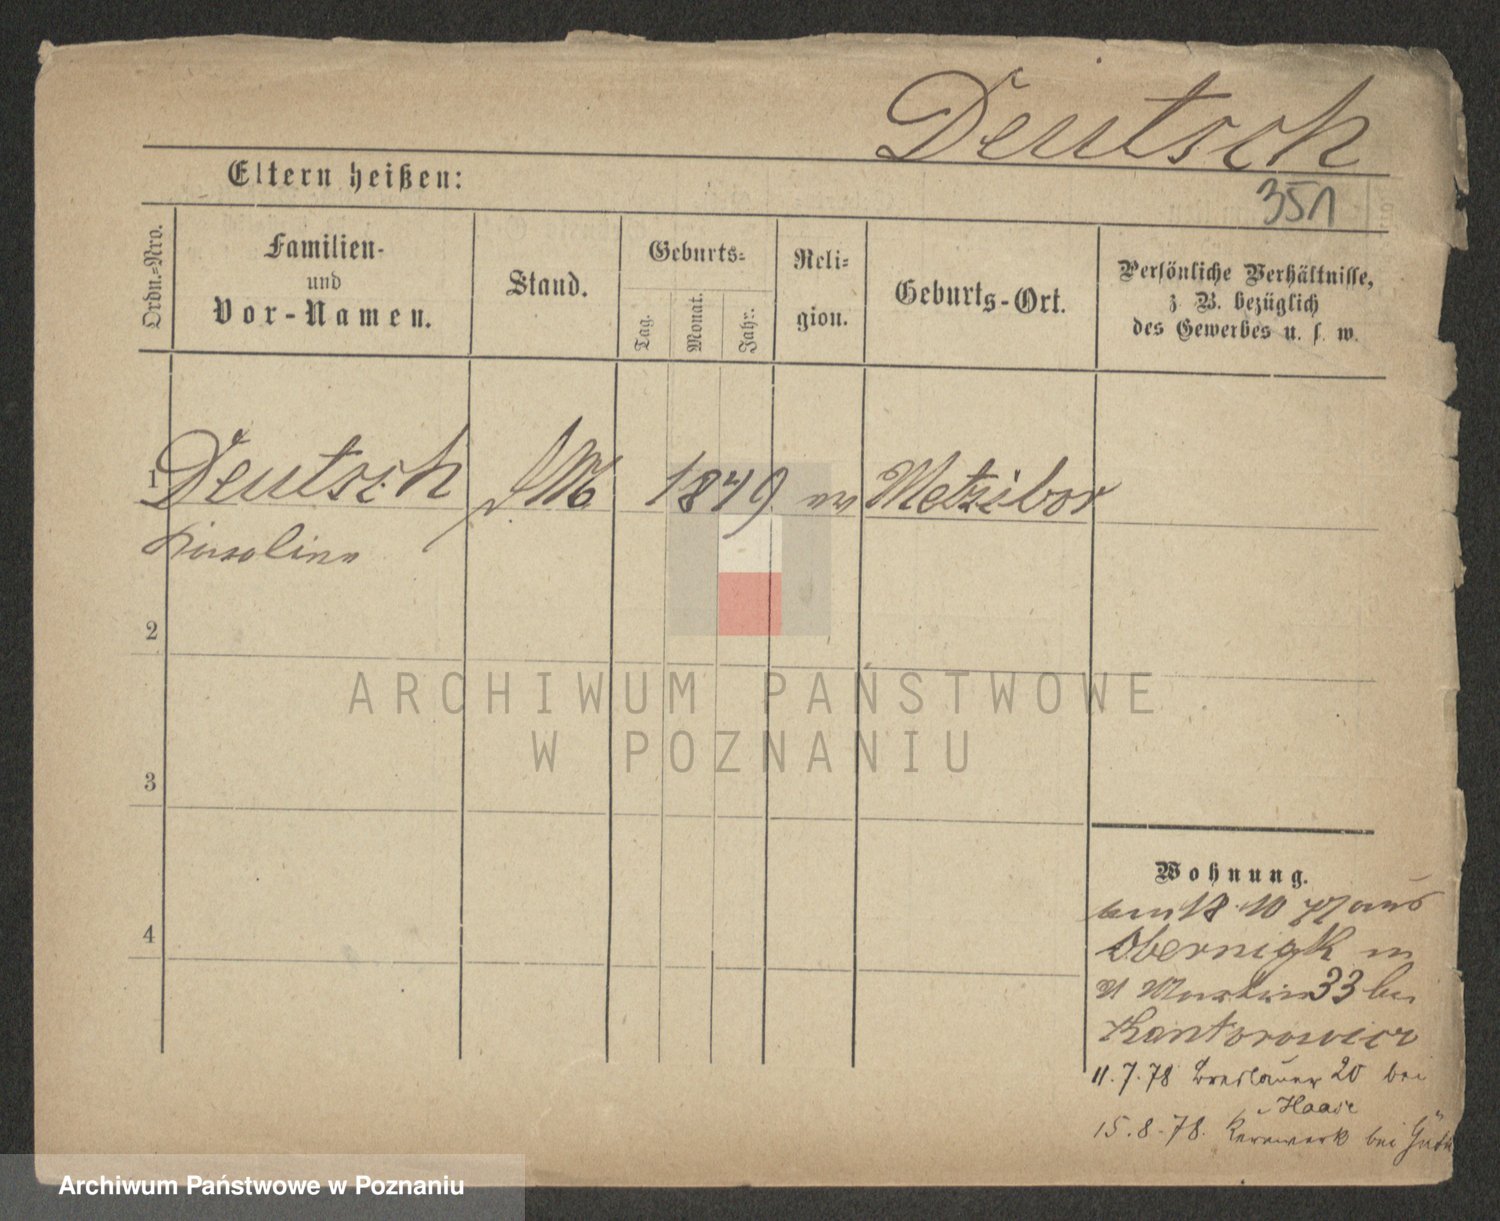 Deutsch
Eltern heißen:
351
Ordn.-Nro.
Familien-
und
Vor-Namen.
Stand.
Geburts-
Tag.
Monat.
Jahr.
Reli-
gion.
Geburts-Ort.
Persönliche Verhältnisse,
z. B. bezüglich
des Gewerbes u. s. w.
1 Deutsch 1849 Metzibor
2
3
4
Wohnung.
am 18 10 77 aus
Obernigk in
Martin 33 bei
Kantorowicz
11.7.78 Breslauer 20 bei
Haase
15.8.78. Kernwerk bei
ARCHIWUM PAŃSTWOWE
W POZNANIU
Archiwum Państwowe w Poznaniu